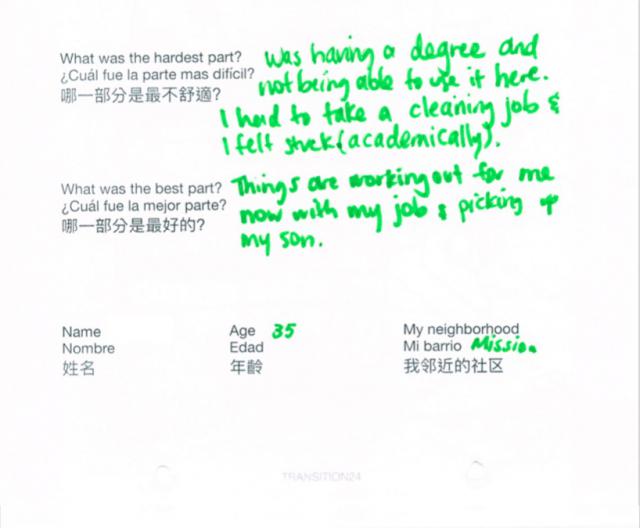 What was the hardest part? Was having a degree and
¿Cuál fue la parte mas difícil? not being able to use it here.
哪一部分是最不舒適? I had to take a cleaning job &
I felt stuck (academically).
What was the best part? Things are working out for me
¿Cuál fue la mejor parte? now with my job & picking up
哪一部分是最好的? my son.
Name Age 35 My neighborhood
Nombre Edad Mi barrio Mission
姓名 年齡 我邻近的社区
TRANSITION24